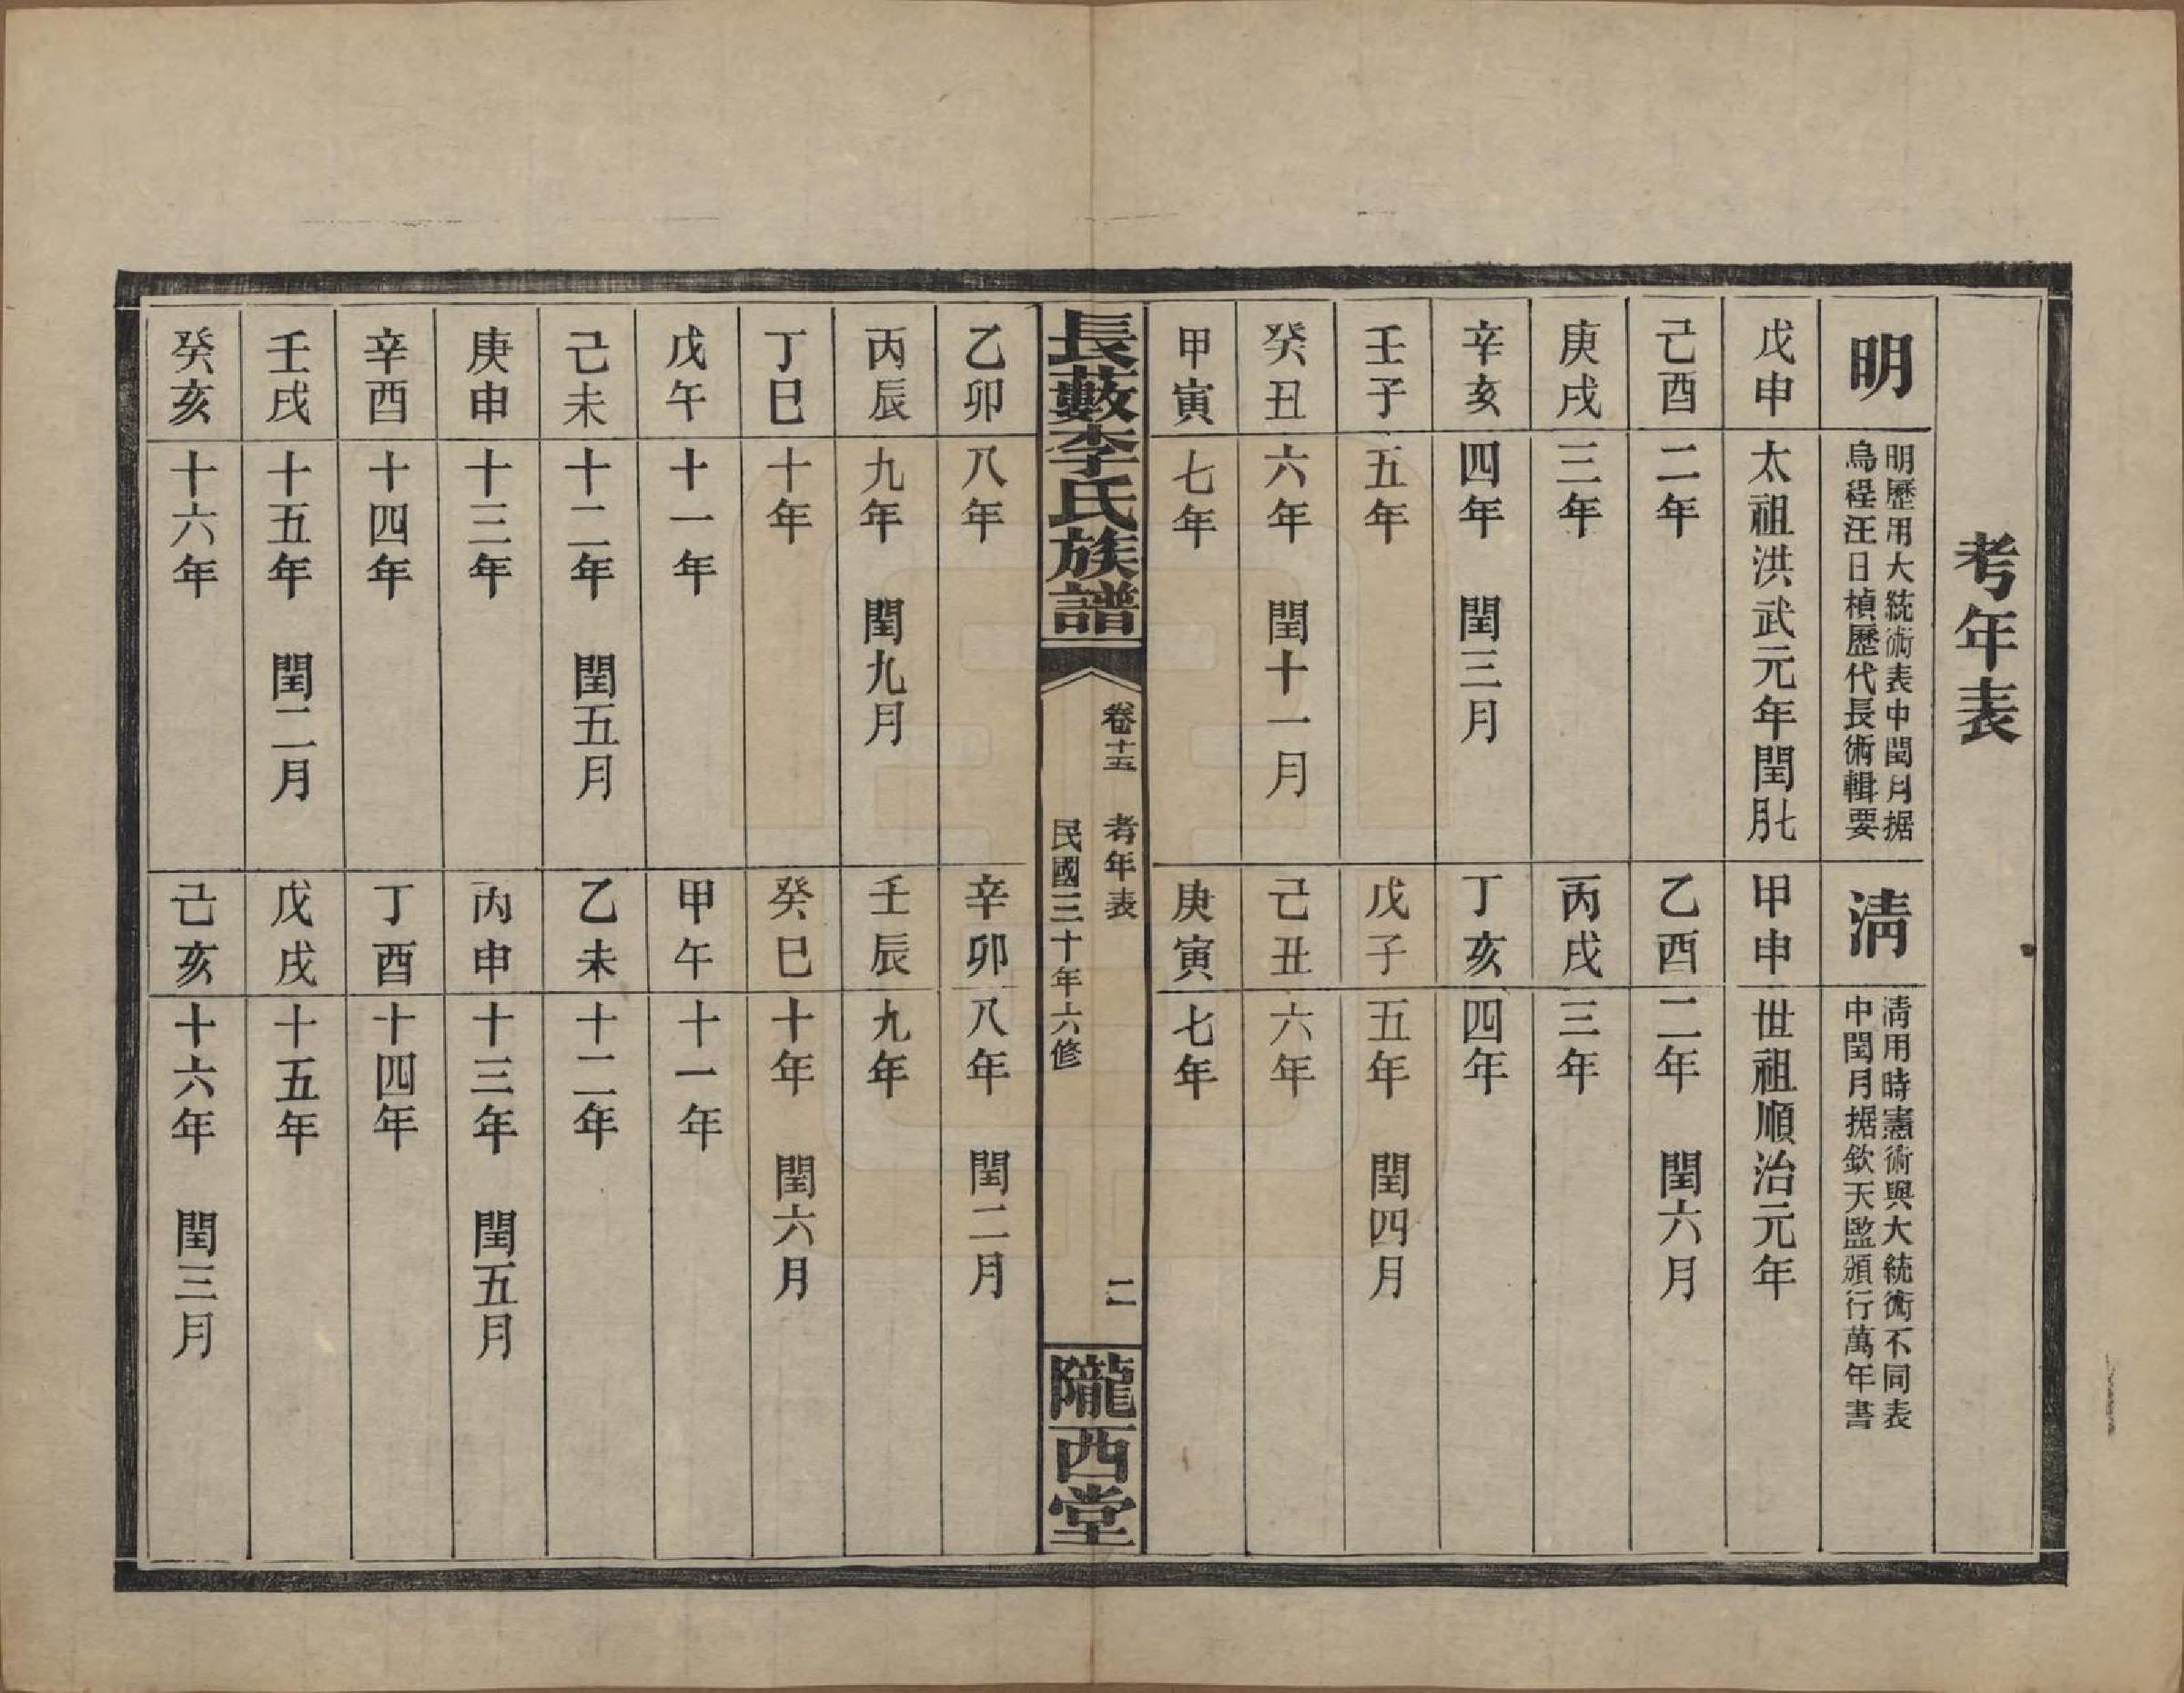 考年表
明
明歷用大統術表中閏月据
烏程汪日楨歷代長術輯要
清
清用時憲術與大統術不同表
中閏月据欽天監頒行萬年書
戊申 太祖洪武元年閏七月
甲申 世祖順治元年
己酉 二年
乙酉 二年 閏六月
庚戌 三年
丙戌 三年
辛亥 四年 閏三月
丁亥 四年
壬子 五年
戊子 五年 閏四月
癸丑 六年 閏十一月
己丑 六年
甲寅 七年
庚寅 七年
長藪李氏族譜
卷十五 考年表 二
民國三十年六修
隴西堂
乙卯 八年
辛卯 八年 閏二月
丙辰 九年 閏九月
壬辰 九年
丁巳 十年
癸巳 十年 閏六月
戊午 十一年
甲午 十一年
己未 十二年 閏五月
乙未 十二年
庚申 十三年
丙申 十三年 閏五月
辛酉 十四年
丁酉 十四年
壬戌 十五年 閏二月
戊戌 十五年
癸亥 十六年
己亥 十六年 閏三月